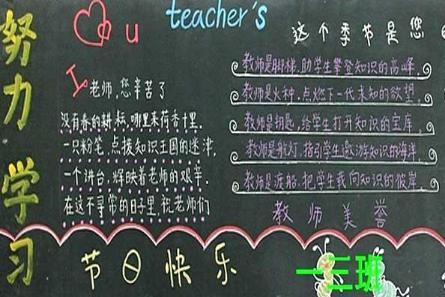 努力学习
u
teacher's
这个季节是您
I
老师,您辛苦了
没有春的耕耘,哪里来荷香十里.
一只粉笔,点拨知识王国的迷津,
一个讲台,辉映着老师的艰辛.
在这不寻常的日子里,祝老师们
节日快乐
教师是脚梯,助学生攀登知识的高峰.
教师是火种,点燃下一代未知的欲望.
教师是钥匙,给学生打开知识的宝库.
教师是航灯,指引学生遨游知识的海洋.
教师是渡船,把学生载向知识的彼岸.
教师美誉
一三班